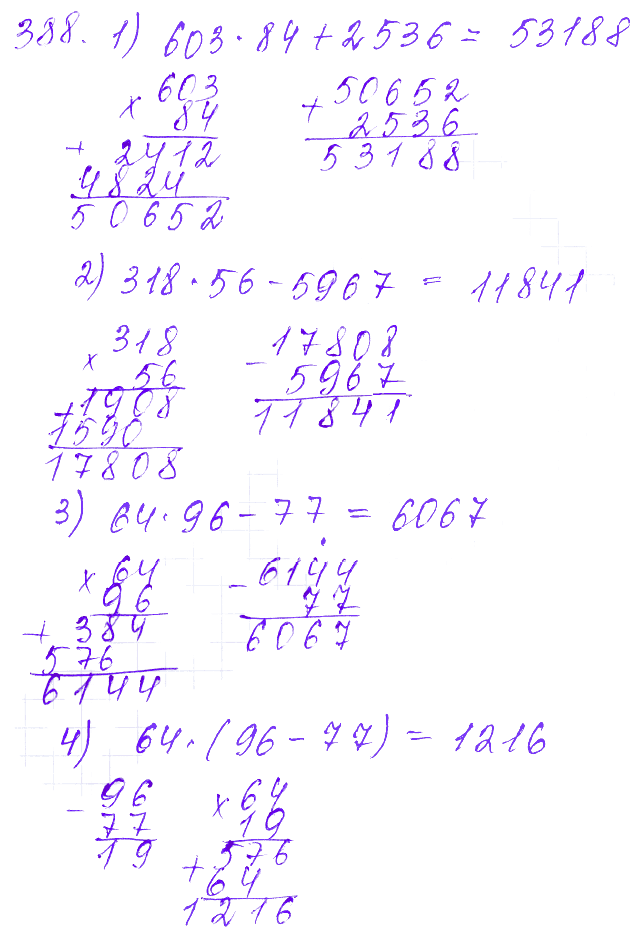 388. 1) 603 · 84 + 2536 = 53188
× 603
84
+ 2412
4824
50652
+ 50652
2536
53188
2) 318 · 56 - 5967 = 11841
× 318
56
+ 1908
1590
17808
- 17808
5967
11841
3) 64 · 96 - 77 = 6067
× 64
96
+ 384
576
6144
- 6144
77
6067
4) 64 · (96 - 77) = 1216
- 96
77
19
× 64
19
+ 576
64
1216